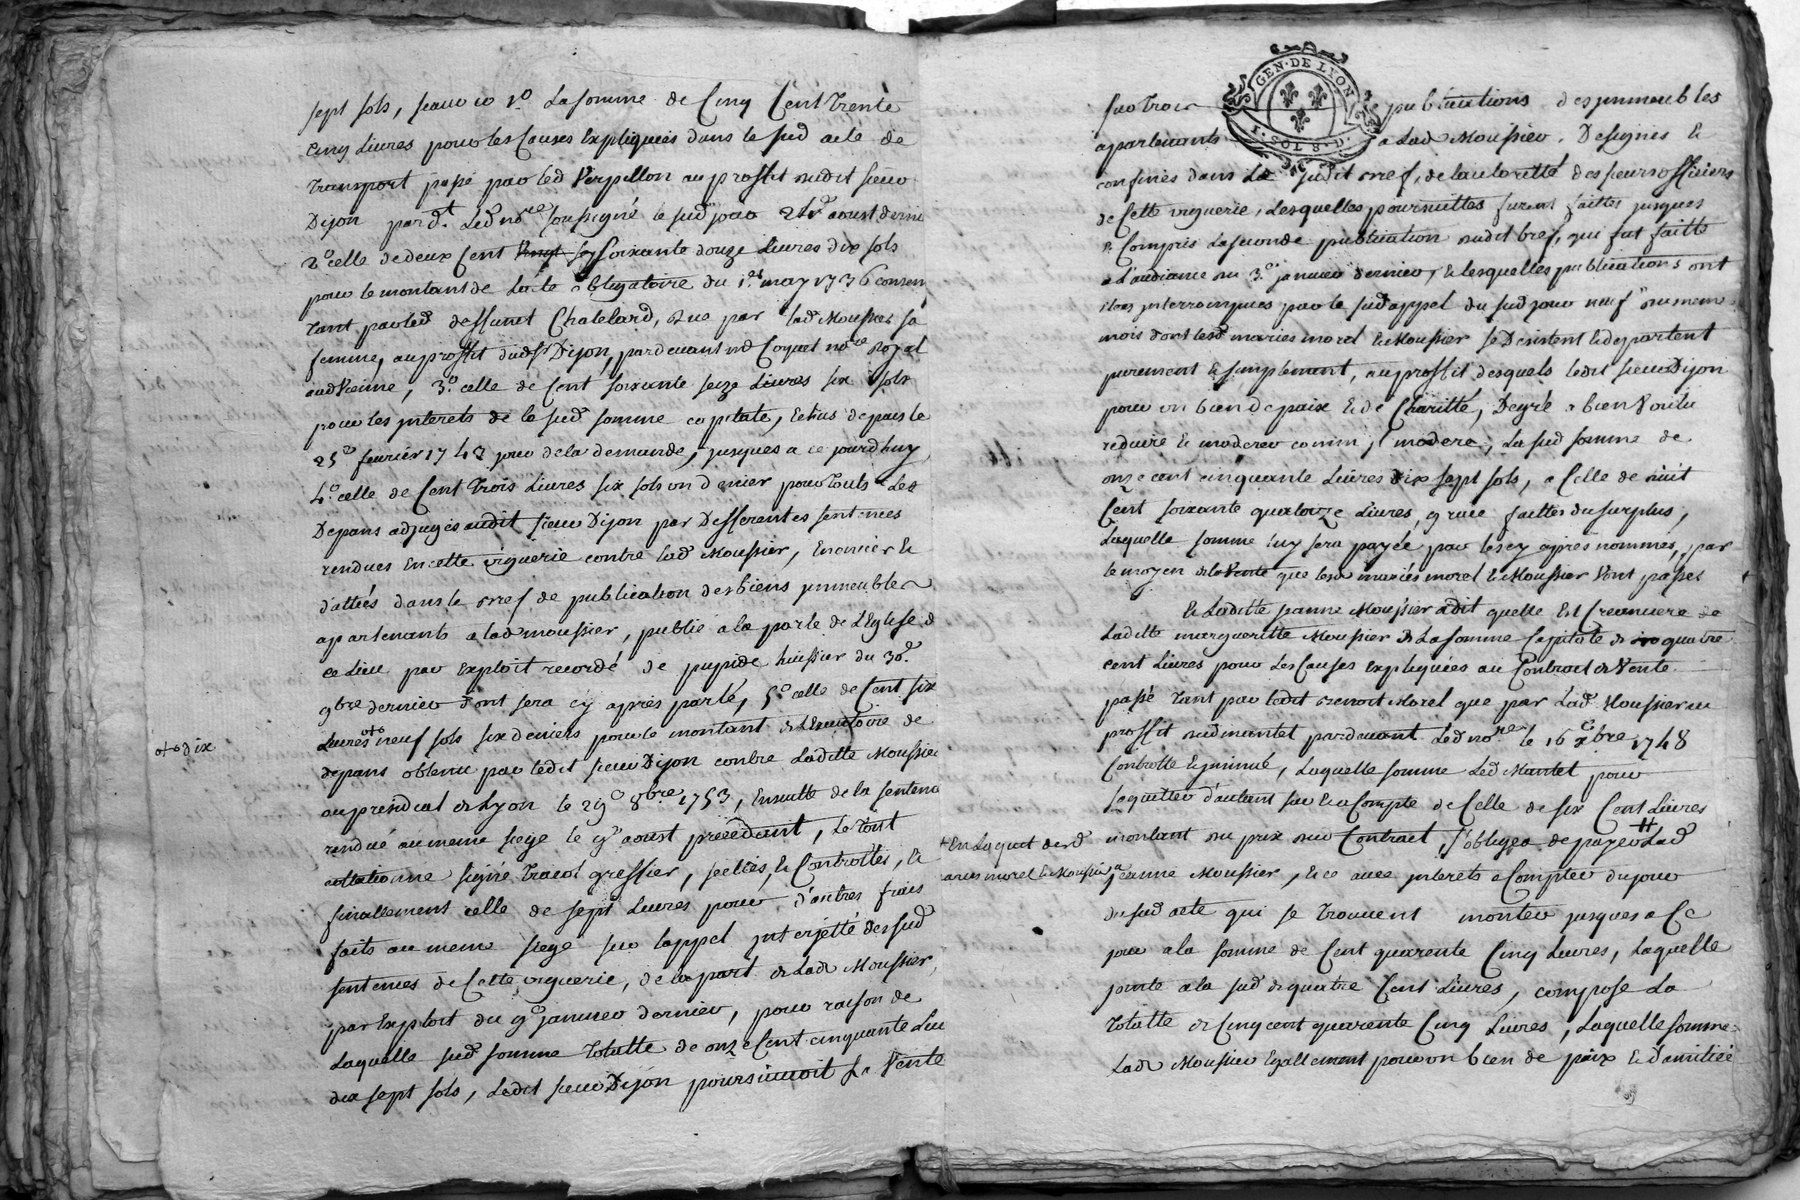 sept sols, scavoir 1.° La somme de Cinq Cent Trente
Cinq Livres pour les Causes Expliquées dans le sud acte de
Transport passé par led Verpillon au proffit dudit sieur
Dijon par d.t Led no.re soussigné le sud jour aoust dernier
2.° celle de deux Cent soixante douze Livres dix sols
pour le montant de Lacte obligatoire du 1.er may 1736 consen
tant par led deffunt Chatelard, que par lad Moussier sa
femme, au proffit dud s.r Dijon, pardevant Coquet no.re Royal
aud Vienne, 3.° celle de Cent soixante seize Livres six sols
pour les interets de la sud somme capitale, Echus depuis le
25.e fevrier 1743 jour de la demande, jusques a ce jourdhuy
4.° celle de Cent Trois Livres six sols un denier pour Touts Les
Depans adjugés audit sieur Dijon par Defferentes sentences
rendues En cette viguerie contre lad Moussier, Enoncier &
d'attées dans le Bref de publication des biens immeubles
apartenants a lad moussier, publié a la porte de L'Eglise d
ce Lieu par Exploit recordé de huissier du 30.e
9bre dernier dont sera cy apres parlé, 5.° celle de Cent six
Livres neuf sols six deniers pour le montant de L'Executoire de
+ dix
depans obtenu par ledit sieur Dijon contre Laditte Moussier
au presidial de Lyon le 29.e 8bre 1753, Ensuitte de la sentence
rendué au meme siege le 9.e aoust precedant, Le Tout
collationné signé greffier, scellés, & Controllés, &
finallement celle de sept Livres pour d'autres frais
faits au meme siege sur lappel interjetté des sud
sentences de Cette viguerie, de la part de Lad Moussier,
par Exploit du 9.e janvier dernier, pour raison de
Laquelle sud somme Totalle de onze Cent cinquante Liv
dix sept sols, Ledit sieur Dijon poursuivoit La Vente
GEN·DE LYON
1·SOL 8·D
sur Trois publications des immeubles
apartenants a Lad Moussier, Designés &
confinés dans Le sudit Bref, de lautorité des sieurs officiers
de Cette viguerie, Lesquelles poursuittes furent faittes jusques
& Compris La seconde publication dudit bref, qui fut faitte
a L'audiance du 3.e janvier dernier, & lesquelles publications ont
étées interrompues par le sud appel du sud jour neuf du meme
mois dont lesd mariés morel & Moussier se Desistent & departent
purement & simplement, au proffit desquels ledit sieur Dijon
pour un bien de paix & de Charitté, Degré a bien Voulu
reduire & moderer comm, il modere, La sud somme de
onze cent cinquante Livres dix sept sols, a Celle de huit
Cent soixante quatorze Livres, grace faitte du surplus,
Laquelle somme luy sera payée par les cy apres nommés, par
le moyen de la Vente que lesd mariés morel & Moussier Vont passer
& Laditte jeanne Moussier a dit quelle Est Creanciere de
Laditte margueritte Moussier de La somme Capitale de quatre
cent Livres pour Les Causes Expliquées au Contract de Vente
passé Tant par ledit Benoit Morel que par Lad Moussier au
proffit dud mantet pardevant Led no.re le 16.e Xbre 1748
Controllé & insinué, Laquelle somme Led Mantel pour
s'aquitter d'autant sur & a Compte de Celle de six Cent Livres
montant du prix dud Contract, s'obligea de payer à Lad
+ En Laquit desd
mariés morel & Moussier
jeanne Moussier, & ce avec interets a Compter du jour
du sud acte qui se Trouvent monter jusques a Ce
jour a la somme de Cent quarente Cinq Livres, Laquelle
jointe a la sud de quatre Cent Livres, compose La
Totalle de Cinq cent quarente Cinq Livres, Laquelle somme
Lad Moussier Egallement pour un bien de paix & d'amitiée